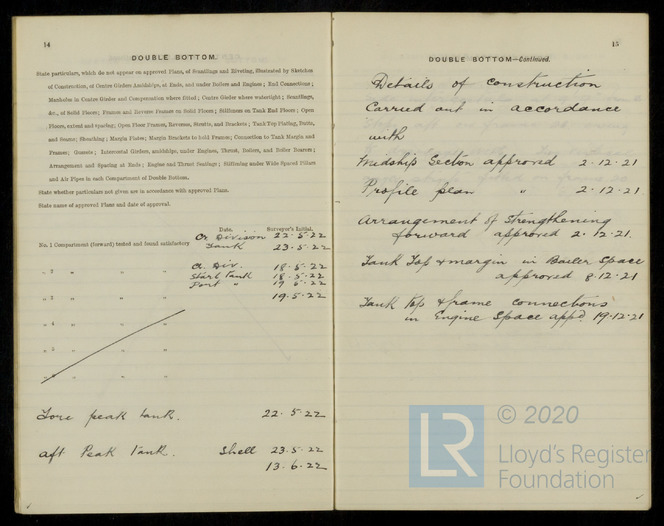 14
DOUBLE BOTTOM.
State particulars, which do not appear on approved Plans, of Scantlings and Riveting, illustrated by Sketches
of Construction, of Centre Girders Amidships, at Ends, and under Boilers and Engines; End Connections;
Manholes in Centre Girder and Compensation where fitted; Centre Girder where watertight; Scantlings,
&c., of Solid Floors; Frames and Reverse Frames on Solid Floors; Stiffeners on Tank End Floors; Open
Floors, extent and spacing; Open Floor Frames, Reverses, Struts, and Brackets; Tank Top Plating, Butts,
and Seams; Sheathing; Margin Plates; Margin Brackets to hold Frames; Connection to Tank Margin and
Frames; Gussets; Intercostal Girders, amidships, under Engines, Thrust, Boilers, and Boiler Bearers;
Arrangement and Spacing at Ends; Engine and Thrust Seatings; Stiffening under Wide Spaced Pillars
and Air Pipes in each Compartment of Double Bottom.
State whether particulars not given are in accordance with approved Plans.
State name of approved Plans and date of approval.
Date. Surveyor's Initial.
Cr Division 22.5.22
No. 1 Compartment (forward) tested and found satisfactory Tank 23.5.22
Cr. Div. 18.5.22
" 2 " " " Starb Tank 18.5.22
Port " 19.5.22
" 3 " " " 19.5.22
" 4 " " "
" 5 " " "
" 6 " " "
Fore peak tank. 22.5.22
aft Peak Tank. Shell 23.5.22
13.6.22
15
DOUBLE BOTTOM—Continued.
Details of construction
Carried out in accordance
with
Midship Section approved 2.12.21
Profile plan " 2.12.21
Arrangement of Strengthening
forward approved 2.12.21.
Tank Top & margin in Boiler Space
approved 8.12.21
Tank top & frame connections
in Engine Space appd. 19.12.21
LR
© 2020
Lloyd's Register
Foundation